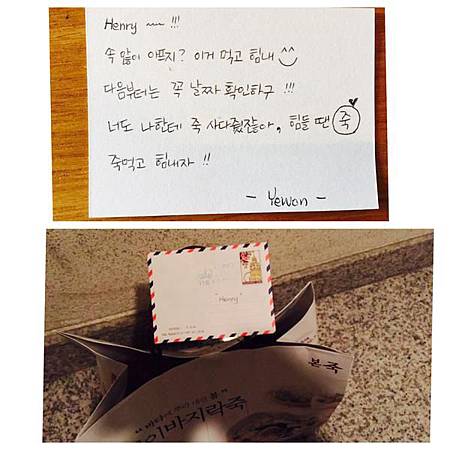 Henry ~~ !!!
속 많이 아프지? 이거 먹고 힘내 ^^
다음부터는 꼭 날짜 확인하구 !!!
너도 나한테 죽 사다줬잖아, 힘들 땐 죽
죽먹고 힘내자 !!
- Yewon -
"Henry"
본죽
이바지락죽